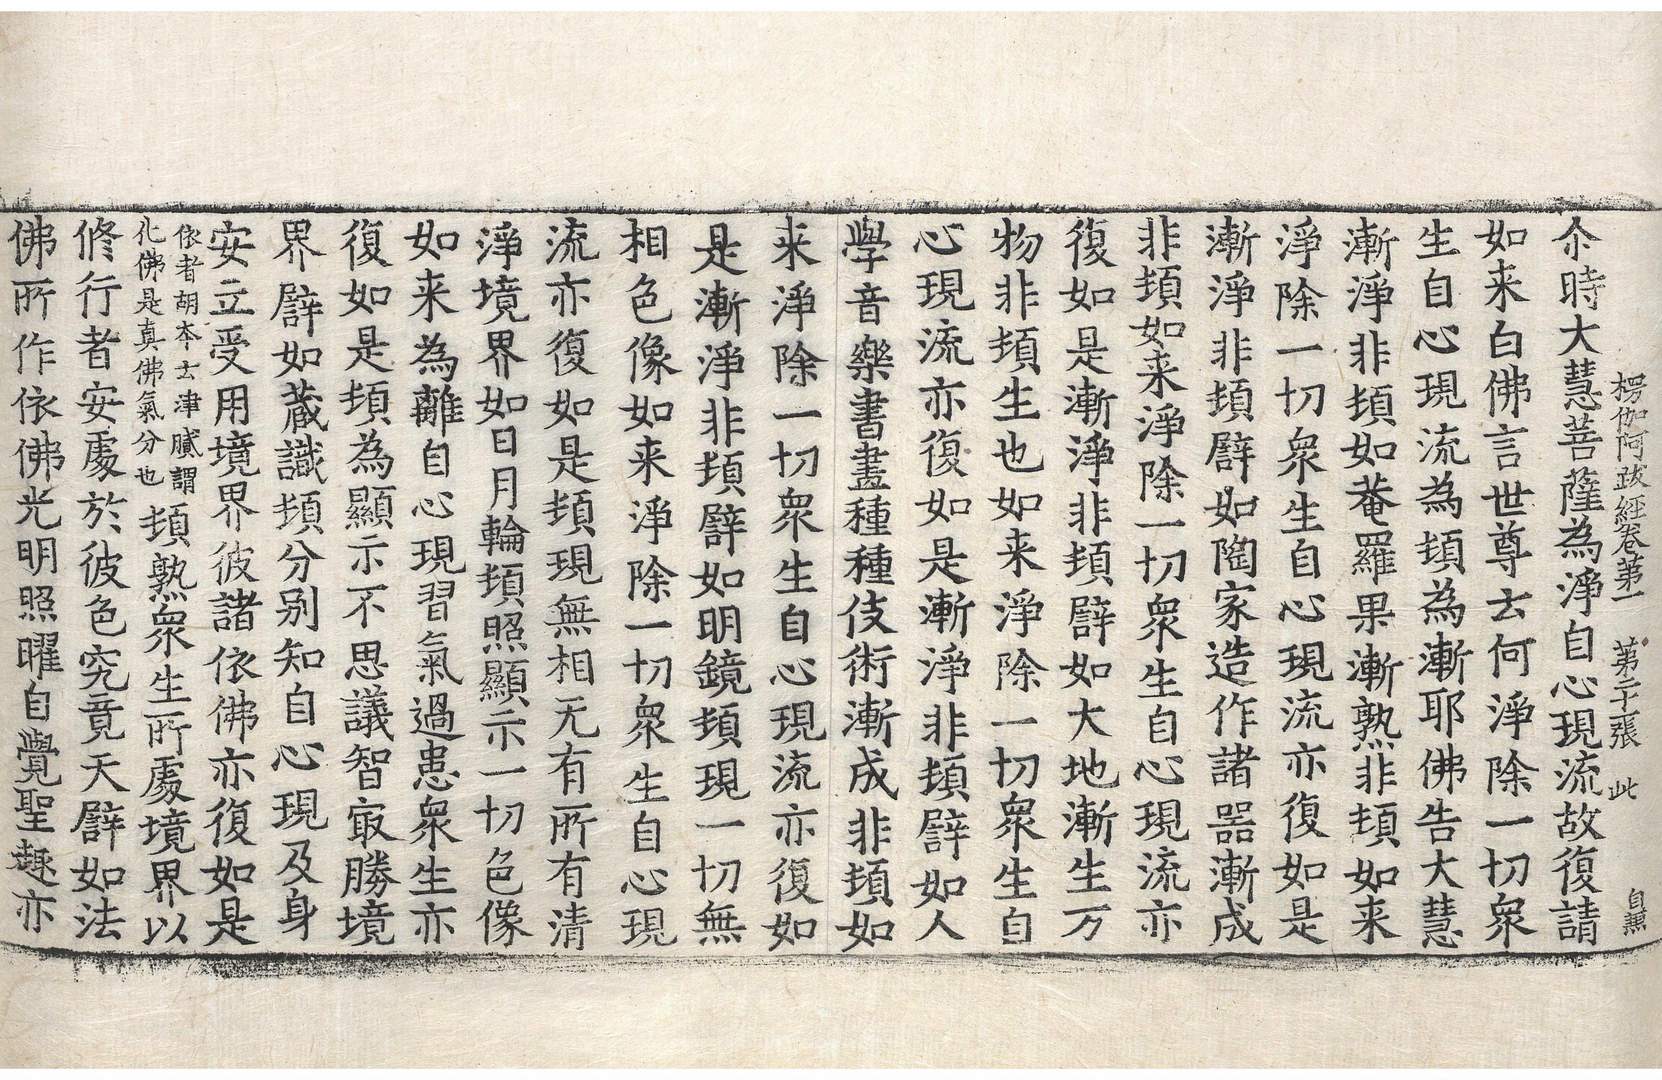 楞伽阿跋經卷第一　第二十張　此　自熏
尒時大慧菩薩為淨自心現流故復請
如来白佛言世尊云何淨除一切衆
生自心現流為頓為漸耶佛告大慧
漸淨非頓如菴羅果漸熟非頓如来
淨除一切衆生自心現流亦復如是
漸淨非頓譬如陶家造作諸器漸成
非頓如来淨除一切衆生自心現流亦
復如是漸淨非頓譬如大地漸生万
物非頓生也如来淨除一切衆生自
心現流亦復如是漸淨非頓譬如人
學音樂書畫種種伎術漸成非頓如
来淨除一切衆生自心現流亦復如
是漸淨非頓譬如明鏡頓現一切無
相色像如来淨除一切衆生自心現
流亦復如是頓現無相无有所有清
淨境界如日月輪頓照顯示一切色像
如来為離自心現習氣過患衆生亦
復如是頓為顯示不思議智冣勝境
界譬如藏識頓分别知自心現及身
安立受用境界彼諸依佛亦復如是
依者胡本云津膩謂
化佛是真佛氣分也
頓熟衆生所處境界以
修行者安處於彼色究竟天譬如法
佛所作依佛光明照曜自覺聖趣亦